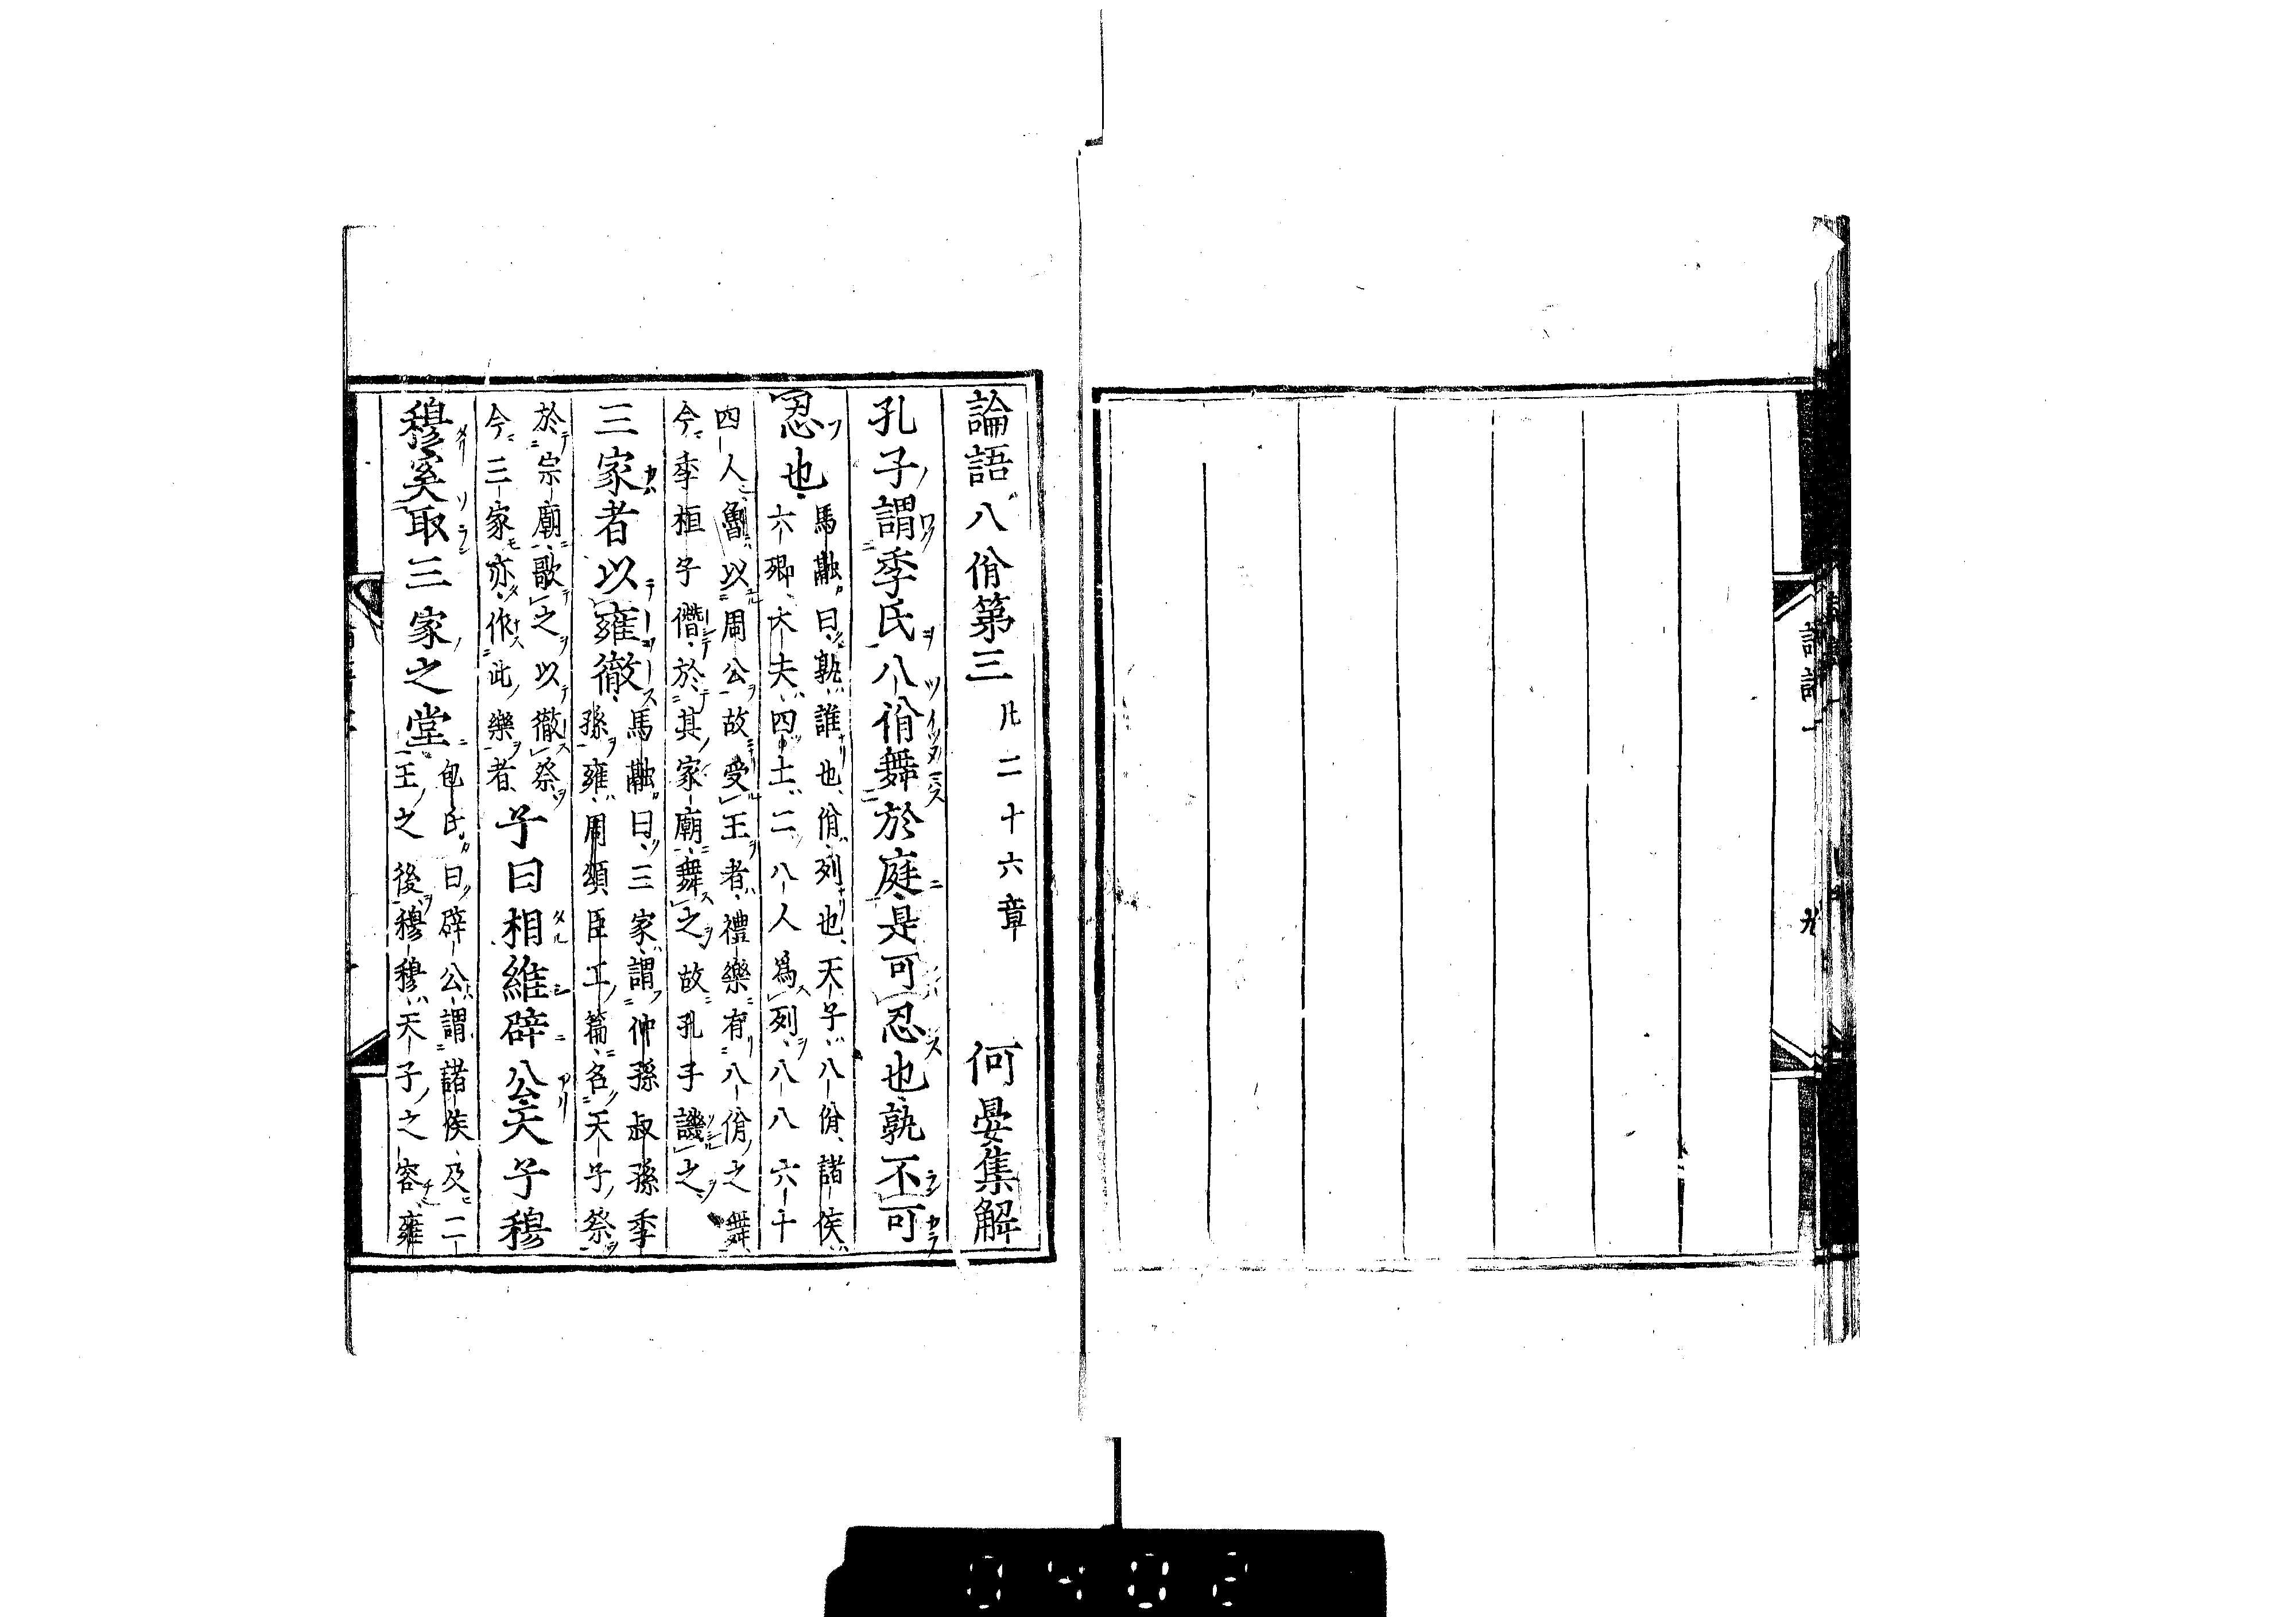 論語八佾第三 凡二十六章 何晏集解
孔子謂季氏八佾舞於庭是可忍也孰不可
忍也
馬融曰孰誰也佾列也天子八佾諸侯
六卿大夫四士二八人爲列八八六十
四人魯以周公故受王者禮樂有八佾之舞
今季桓子僭於其家廟舞之故孔子譏之
三家者以雍徹
馬融曰三家謂仲孫叔孫季
孫雍周頌臣工篇名天子祭
於宗廟歌之以徹祭
今三家亦作此樂者
子曰相維辟公天子穆
穆奚取三家之堂
包氏曰辟公謂諸侯及二
王之後穆穆天子之容雍
九
0402